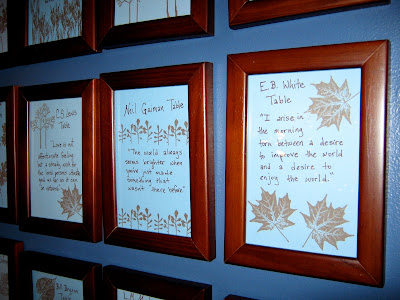 C.S. Lewis
Table
Love is not
affectionate feeling
but a steady wish for
the loved person's ultimate
good as far as it can
be obtained."
Neil Gaiman Table
"The world always
seems brighter when
you've just made
something that
wasn't there before."
E.B. White
Table
"I arise in
the morning
torn between a desire
to improve the world
and a desire to
enjoy the world."
Table